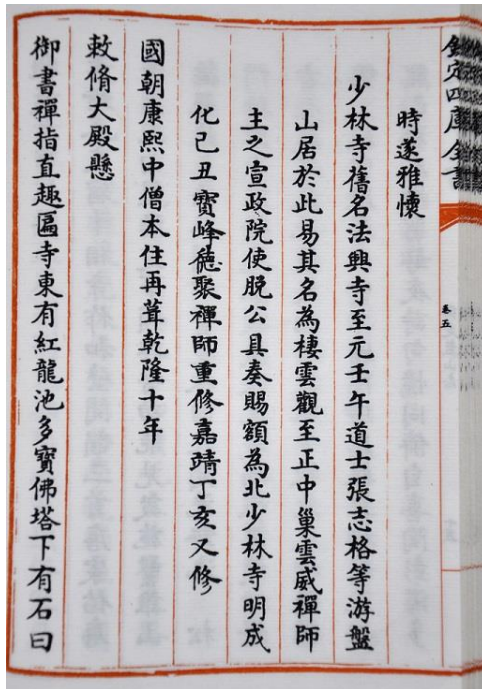 欽定四庫全書
卷五
時遂雅懷
少林寺舊名法興寺至元壬午道士張志格等游盤
山居於此易其名為棲雲觀至正中巢雲威禪師
主之宣政院使脫公具奏賜額為北少林寺明成
化己丑寳峰徳聚禪師重修嘉靖丁亥又修
國朝康熙中僧本住再葺乾隆十年
敕脩大殿懸
御書禪指直趣匾寺東有紅龍池多寳佛塔下有石曰